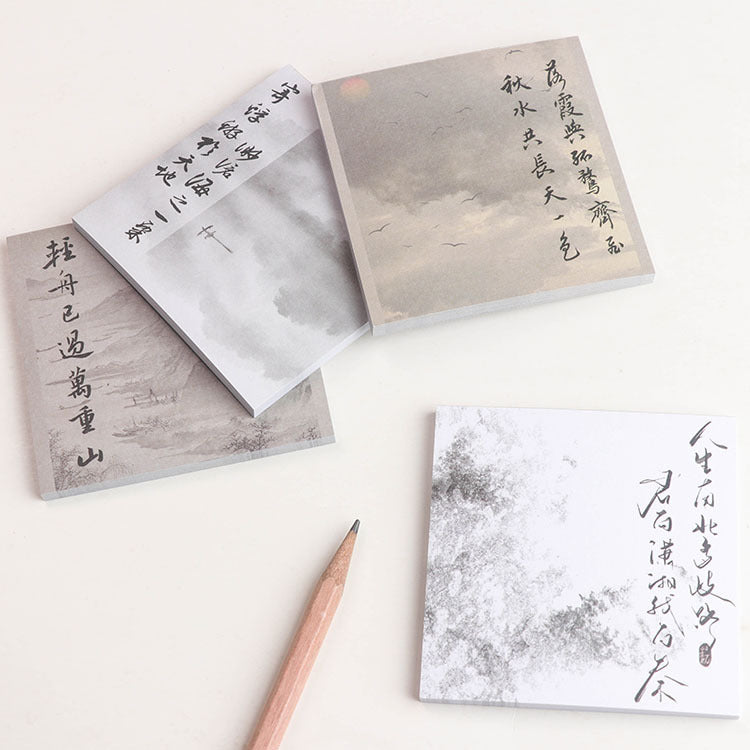 輕舟已過萬重山
寄浮游於天地
渺滄海之一粟
落霞與孤鶩齊飛
秋水共長天一色
人生南北多歧路
君向瀟湘我向秦